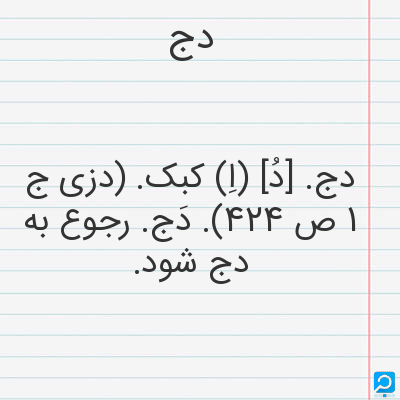 دج
دج. [دُ] (اِ) کبک. (دزی ج
۱ ص ۴۲۴). دَج. رجوع به
دج شود.